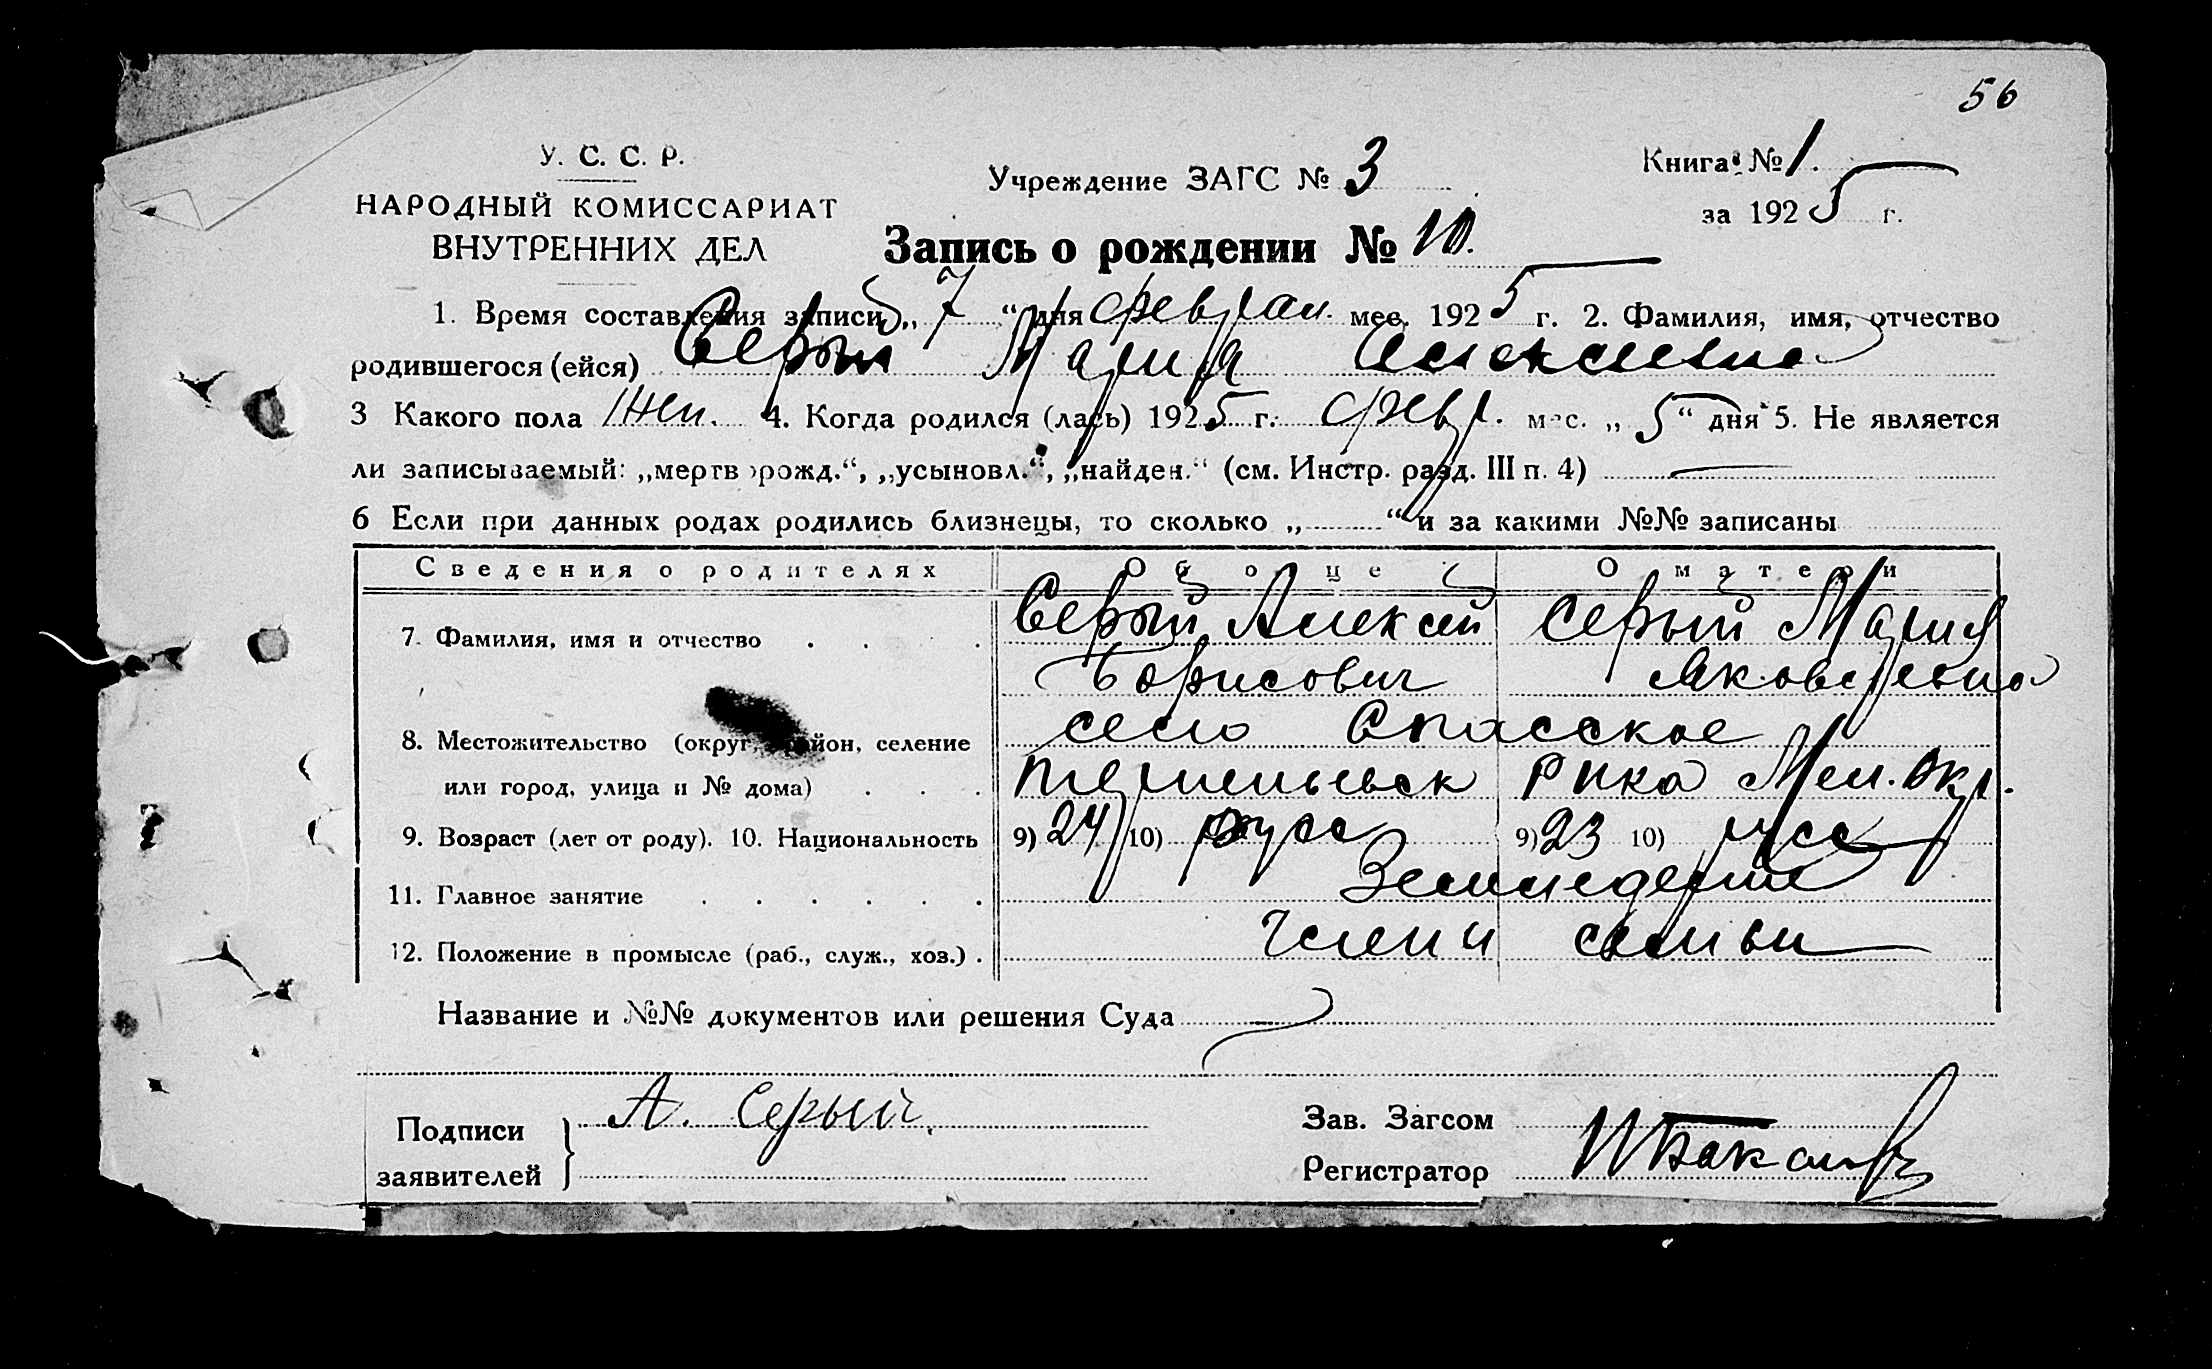 56
У. С. С. Р.
НАРОДНЫЙ КОМИССАРИАТ
ВНУТРЕННИХ ДЕЛ
Учреждение ЗАГС № 3
Книга № 1.
за 1925 г.
Запись о рождении № 10.
1. Время составления записи „ 7 “ дня феврал. мес. 1925 г. 2. Фамилия, имя, отчество
родившегося (ейся) Серый Мария Алексеевна
3 Какого пола жен. 4. Когда родился (лась) 1925 г. февр. мес. „ 5 “ дня 5. Не является
ли записываемый: „мертворожд.“, „усыновл.“, „найден.“ (см. Инстр. разд. III п. 4) —
6 Если при данных родах родились близнецы, то сколько „ “ и за какими №№ записаны
Сведения о родителях Об отце О матери
7. Фамилия, имя и отчество Серый Алексей Серый Мария
Борисович Яковлевна
8. Местожительство (округ, район, селение село Спасское
или город, улица и № дома) Терпеньевск Рика Мел. Окр.
9. Возраст (лет от роду). 10. Национальность 9) 24 10) русс 9) 23 10) русс
11. Главное занятие Земледелие
12. Положение в промысле (раб., служ., хоз.) члены семьи
Название и №№ документов или решения Суда
Подписи заявителей А. Серый.
Зав. Загсом
Регистратор